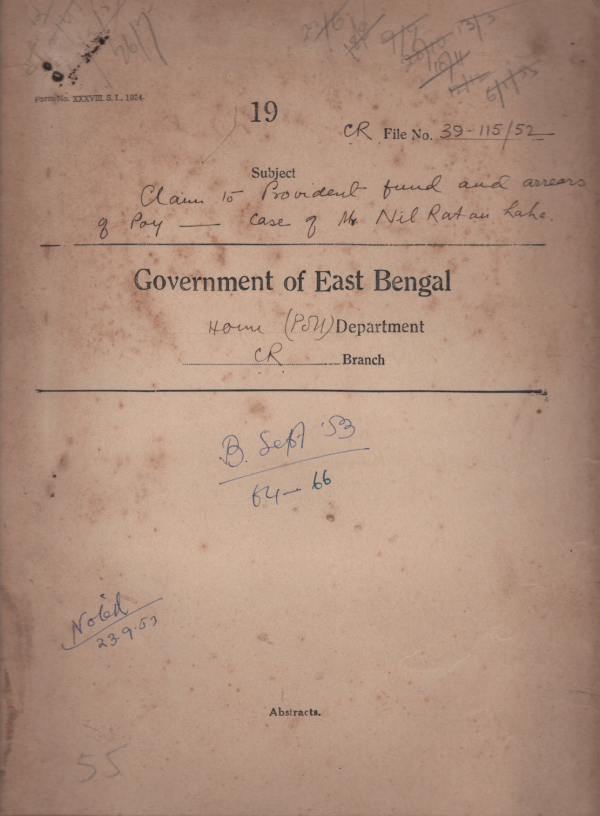 26/7
13/3
Form No. XXXVIII. S. I., 1924.
19
CR File No. 39-115/52
Subject
Claim to Provident fund and arrears
of Pay — case of Mr. Nil Ratan Laha.
Government of East Bengal
Home (Poll) Department
CR Branch
B. Sept '53
64-66
Noted
23.9.53
Abstracts.
55